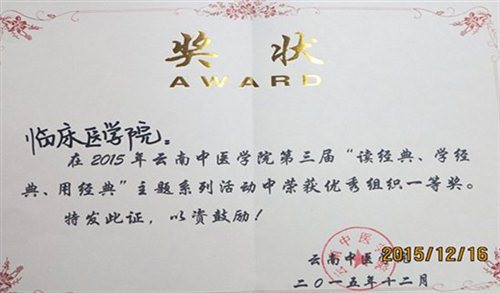 奖状
AWARD
临床医学院：
在2015年云南中医学院第三届“读经典、学经
典、用经典”主题系列活动中荣获优秀组织一等奖。
特发此证，以资鼓励！
云南中医
2015/12/16
二〇一五年十二月